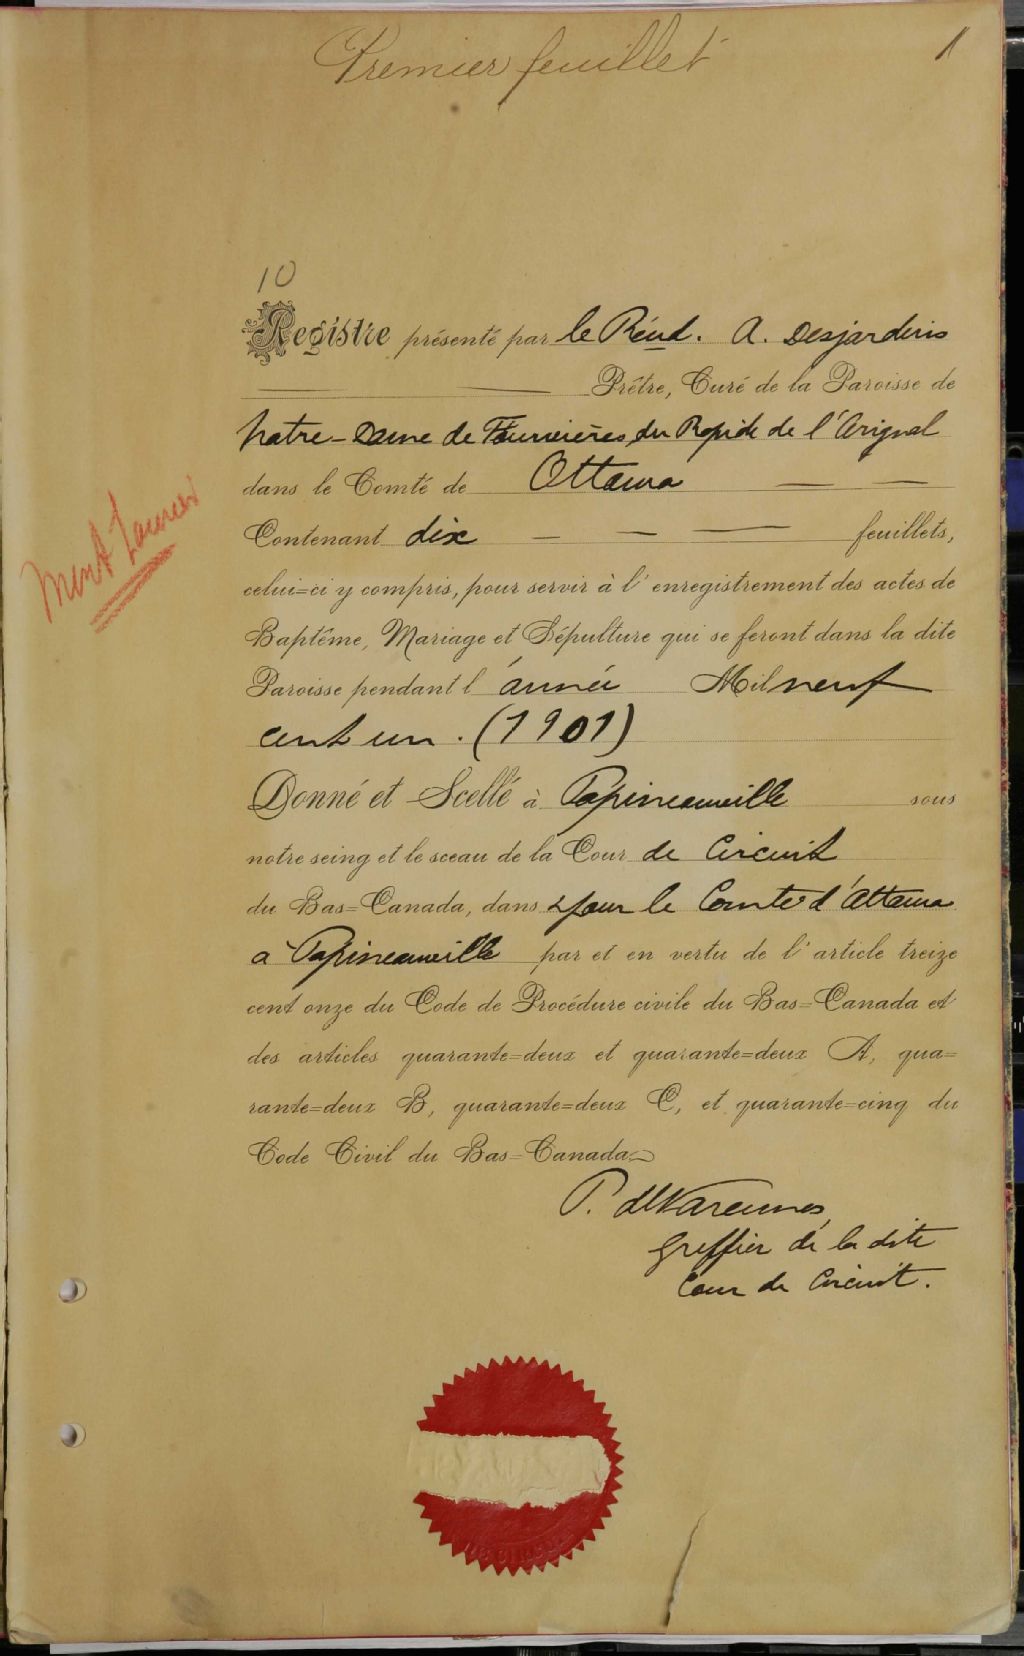 Premier feuillet
1
10
Registre présenté par le Révd. A. Desjardins
Prêtre, Curé de la Paroisse de
Notre-Dame de Fourvières du Rapide de l'Orignal
dans le Comté de Ottawa
Contenant dix feuillets,
celui=ci y compris, pour servir à l'enregistrement des actes de
Baptême, Mariage et Sépulture qui se feront dans la dite
Paroisse pendant l'année Mil neuf
cent un. (1901)
Donné et Scellé à Papineauville sous
notre seing et le sceau de la Cour de Circuit
du Bas=Canada, dans & pour le Comté d'Ottawa
à Papineauville par et en vertu de l'article treize
cent onze du Code de Procédure civile du Bas=Canada et
des articles quarante=deux et quarante=deux A, qua=
rante=deux B, quarante=deux C, et quarante=cinq du
Code Civil du Bas=Canada
P. deVarennes,
Greffier de la dite
Cour de Circuit.
Mont Laurier